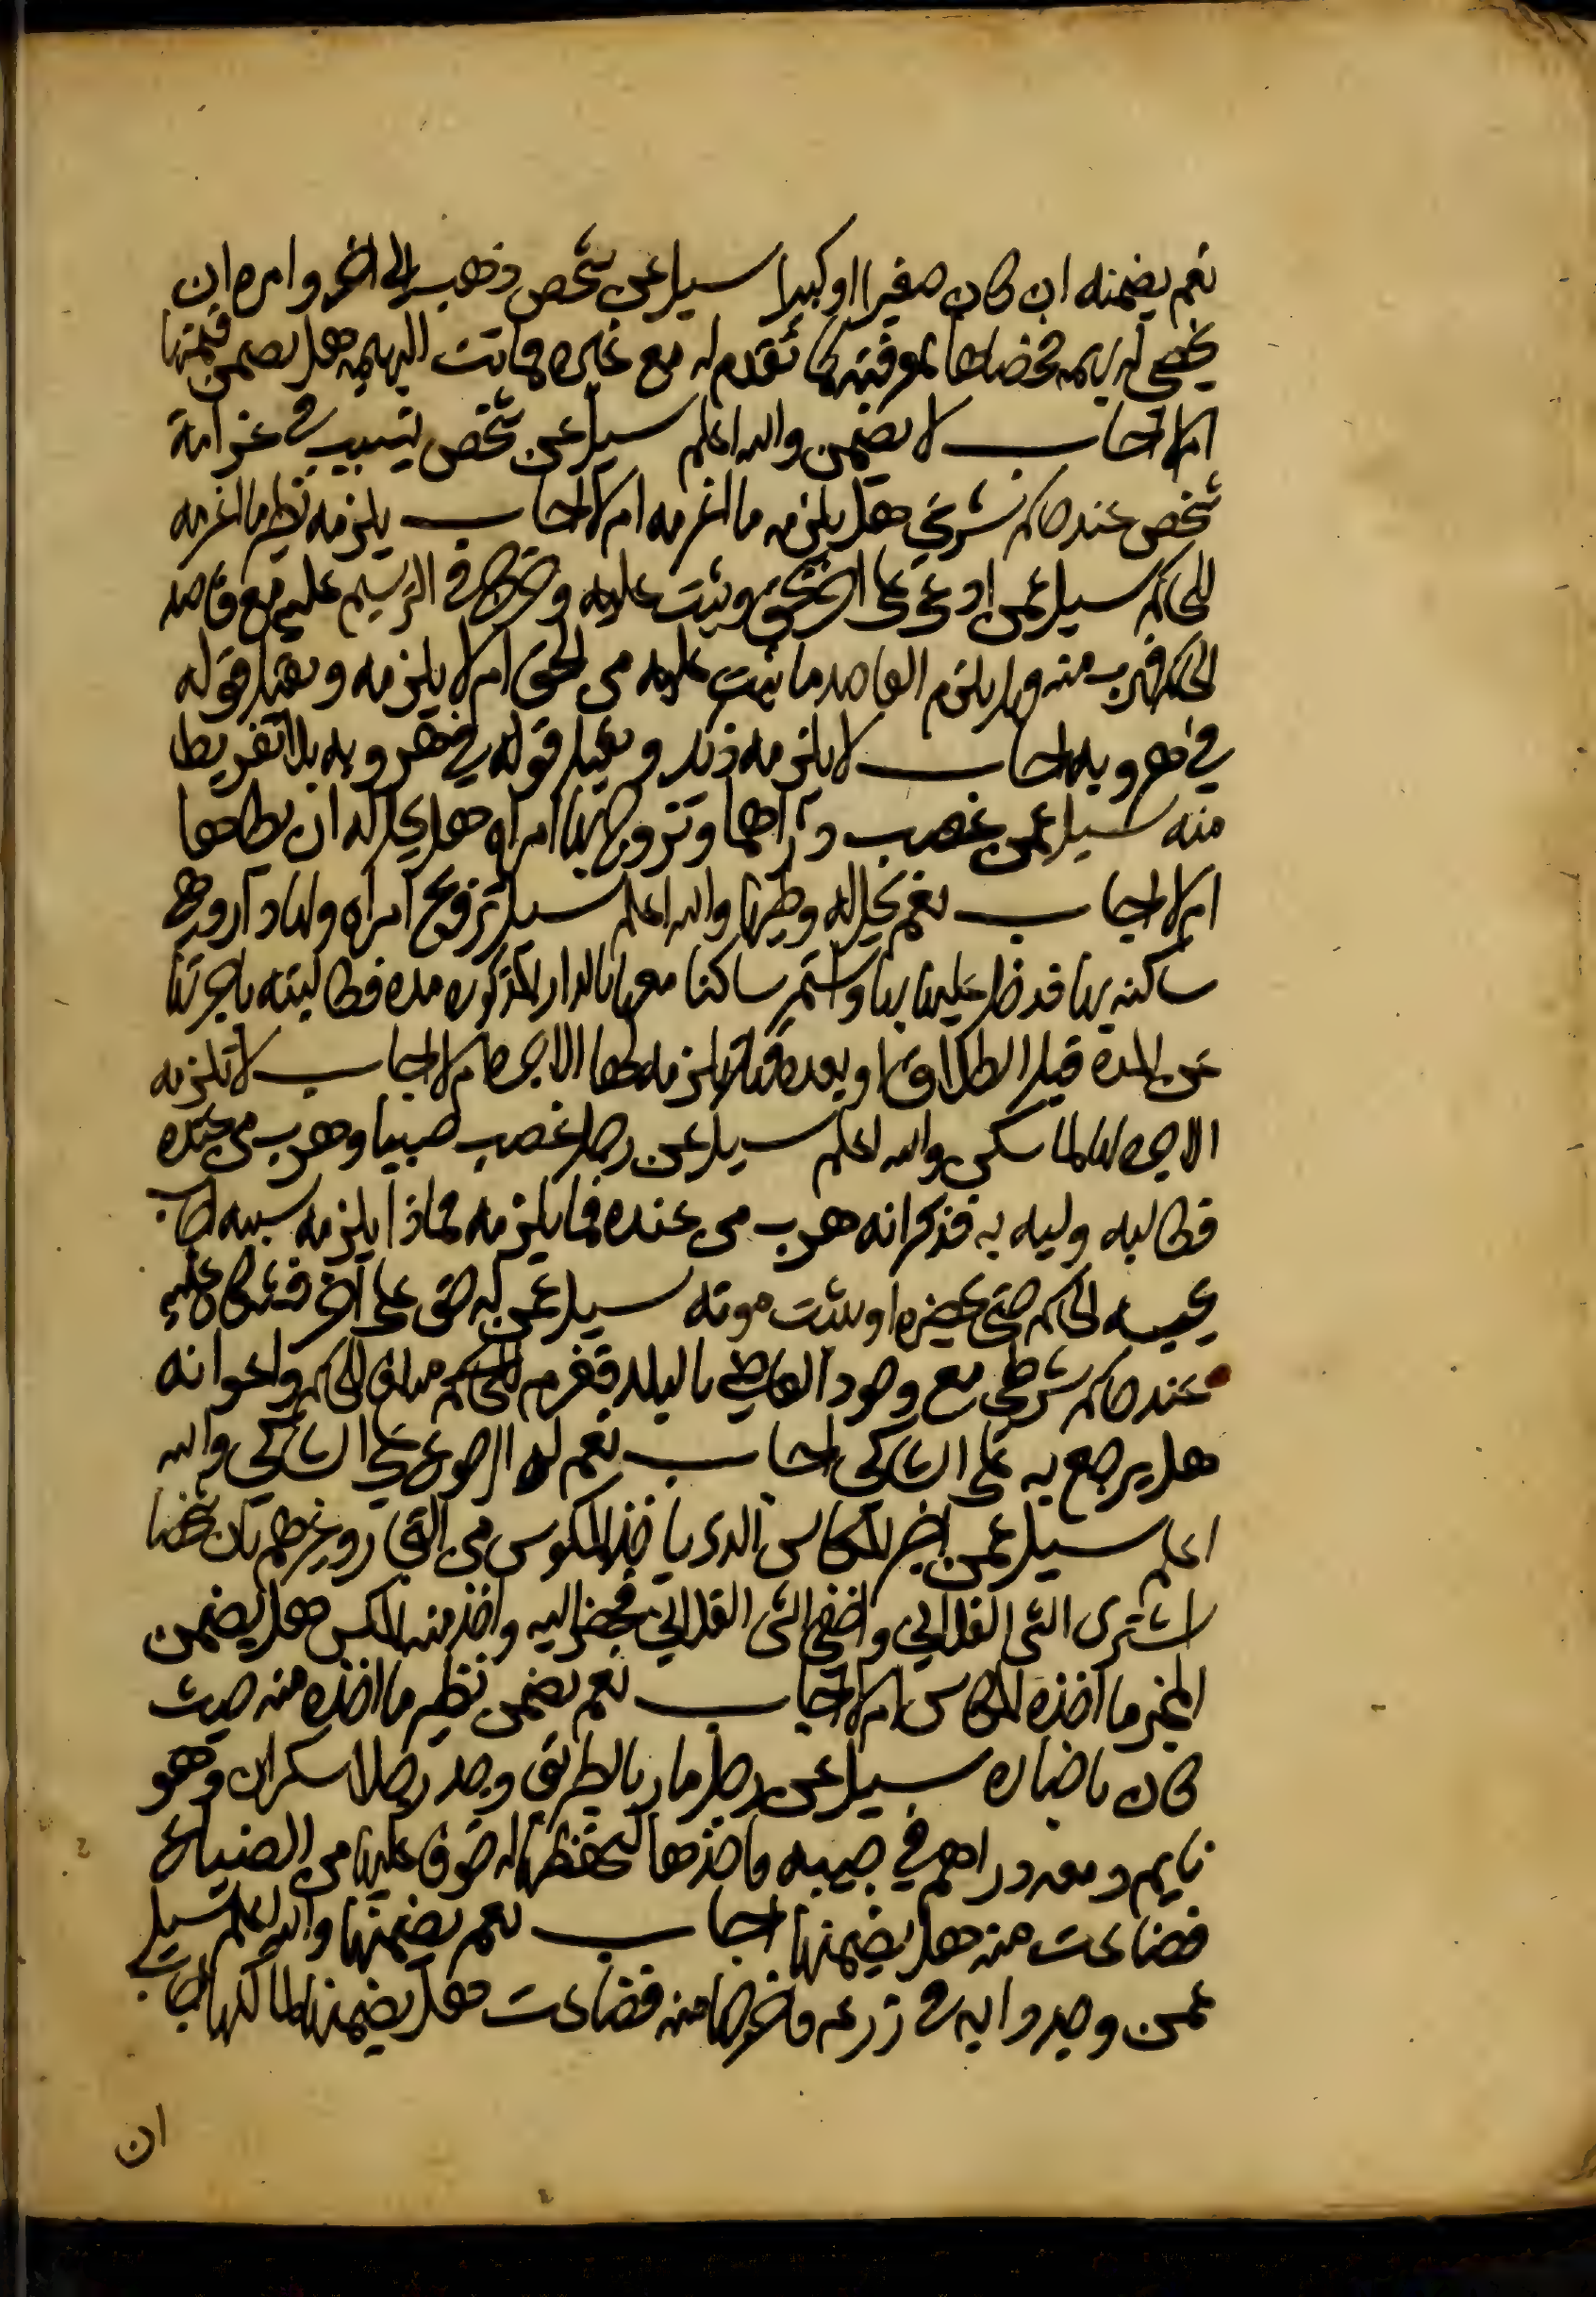 نعم يضمنه ان كان صغيرا او كبيرا سيل عن شخص ذهب الى اخر وامره ان
يخصي له بهيمه فخصاها بمعرفته كما تقدم له مع غيره فماتت البهيمه هل يضمن قيمتها
ام لا اجاب لا يضمن والله اعلم سيل عن شخص تسبب في غرامة
شخص عند حاكم شرعي هل يلزمه ما اغرمه ام لا اجاب يلزمه نظير ما اغرمه
للحاكم سيل عمن ادعى على اخر بحق وثبت عليه وخرج في الترسيم عليه مع قاصد
الحاكم فهرب منه فهل يلزم القاصد ما ثبت عليه من الحق ام لا يلزمه ويقبل قوله
في هروبه اجاب لا يلزمه ذلك ويقبل قوله في هروبه بلا تفريط
منه سيل عمن غصب دراهما وتزوج بها امراه هل يحل له ان يطاها
ام لا اجاب نعم يحل له وطيها والله اعلم سيل تزوج امراه ولها دار وهي
ساكنه بها فدخل عليها بها واستمر ساكنا معها بالدار المذكوره مده فطالبته باجرتها
عن المدة قبل الطلاق او بعده فهل يلزمه لها الاجره ام لا اجاب لا تلزمه
الاجره لها لما سكن والله اعلم سيل عن رجل غصب صبيا وهرب من عنده
فطالبه وليه به فذكر انه هرب من عنده فما يلزمه فماذا يلزمه بسببه اجاب
يحبسه الحاكم حتى يحضره او يثبت موته سيل عمن له حق على اخر فشكى عليه
عند حاكم شرطي مع وجود القاضي بالبلد فغرم للحاكم مبلغ الحاكم واعوانه
هل يرجع به على الشاكي اجاب نعم له الرجوع على الشاكي والله
اعلم سيل عمن اخبر المكاس الذي ياخذ المكوس من التجار وغيرهم بان شخصا
اشترى الشي الفلاني واخفى الشي الفلاني فحضر اليه واخذ منه المكس هل يضمن
المخبر ما اخذه المكاس ام لا اجاب نعم يضمن نظير ما اخذه منه حيث
كان باخباره سيل عن رجل مار بالطريق وجد رجلا سكران وهو
نايم ومعه دراهم في جيبه فاخذها ليحفظها له خوف عليها من الضياع
فضاعت منه هل يضمنها اجاب نعم يضمنها والله اعلم سيل
عمن وجد دابه في زرعه فاخرجها منه فضاعت هل يضمنها لمالكها اجاب
ان